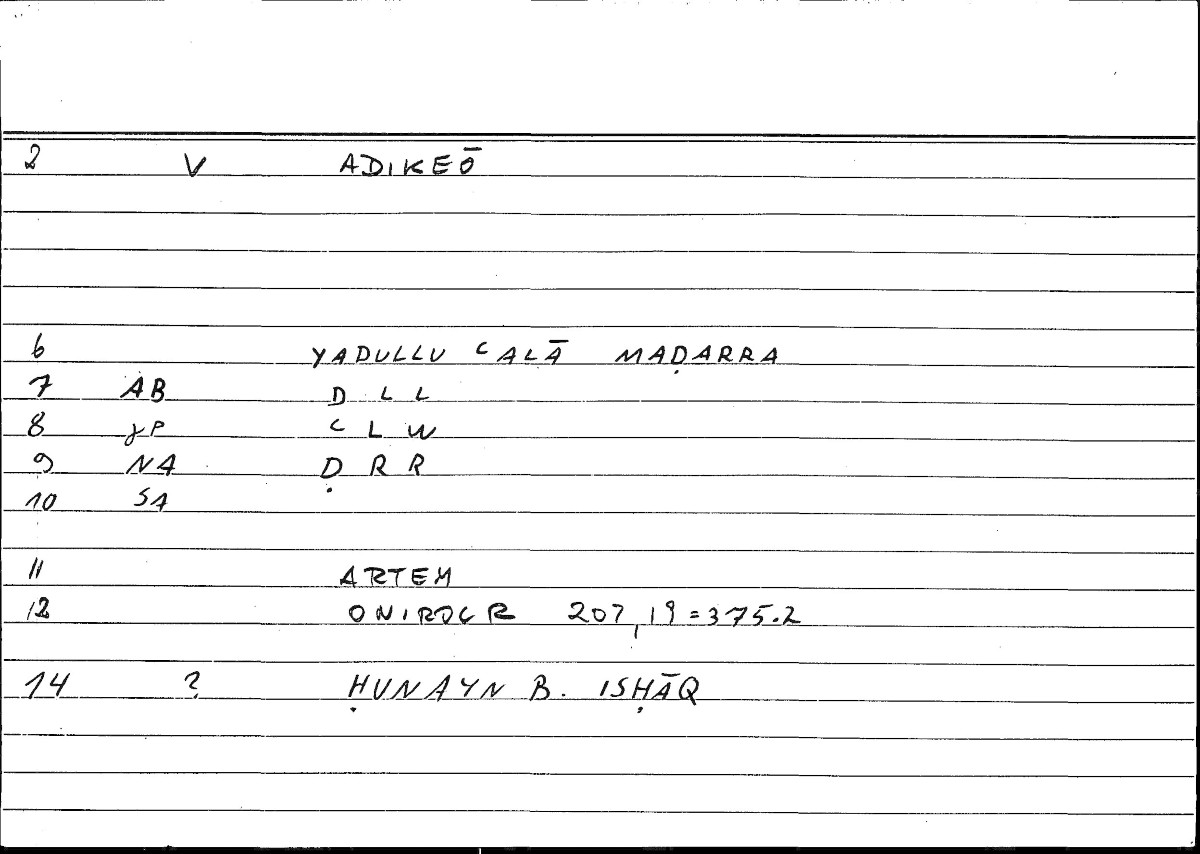 2 V ADIKEŌ
6 YADULLU ʿALĀ MAḌARRA
7 AB D L L
8 ɣP ʿ L W
9 NA Ḍ R R
10 SA
11 ARTEM
12 ONIROCR 207,19=375.2
14 ? ḤUNAYN B. ISḤĀQ